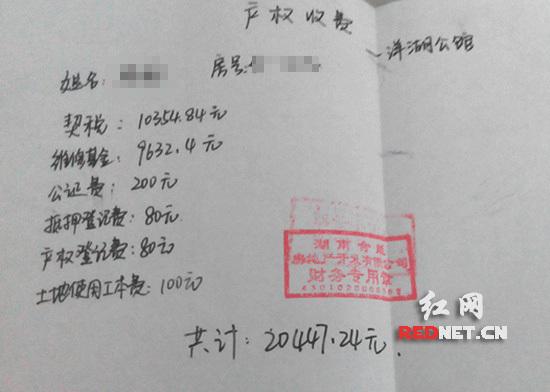 产权收费
—洋湖公馆
姓名:
房号:
契税:10354.84元
维修基金:9632.4元
公证费:200元
抵押登记费:80元
产权登记费:80元
土地使用工本费:100元
湖南
房地产开发有限公司
财务专用章
共计:20447.24元.
红网
REDNET.CN